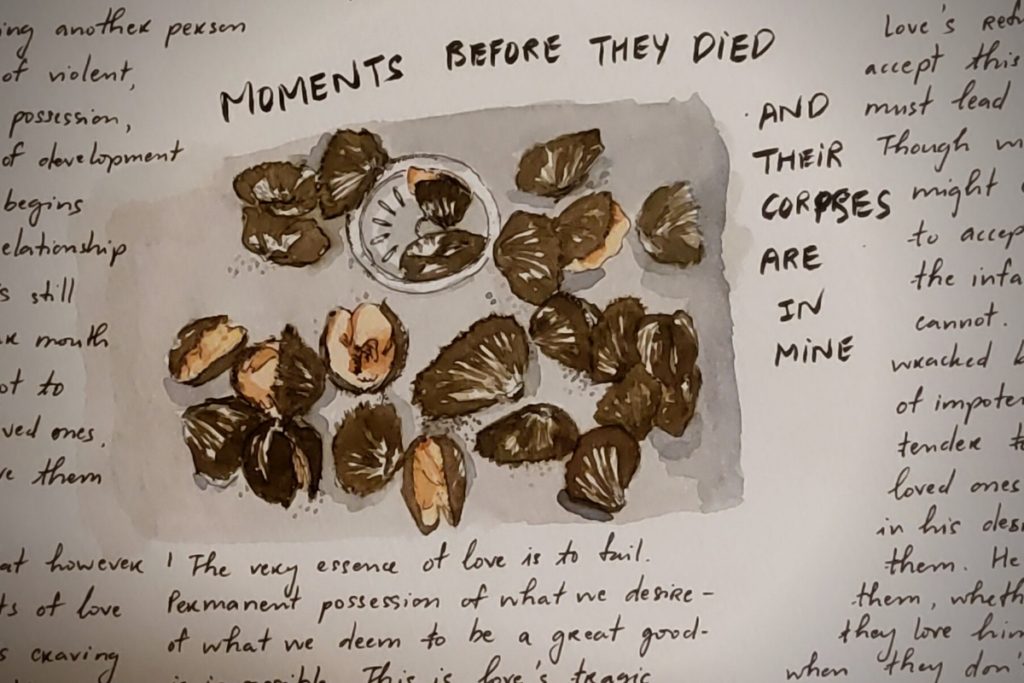 ing another person
of violent,
possession,
of development
begins
elationship
s still
mouth
ot to
ved ones,
ve them
at however
ts of love
s craving
MOMENTS BEFORE THEY DiED
AND
THEiR
CORPSES
ARE
IN
MiNE
' The very essence of love is to fail.
Permanent possession of what we desire -
of what we deem to be a great good-
This is love's tragic
Love's refu
accept this
must lead
Though
might
to accep
the infa
cannot.
wracked
of impoten
tender
loved ones
in his desi
them. He
them, wheth
they love him
when they don'